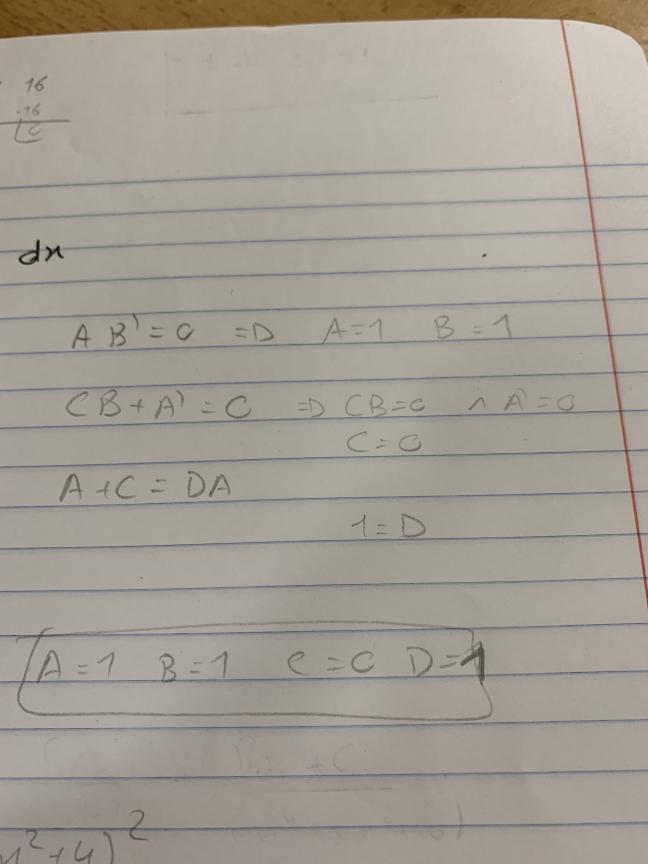 16
-16
0
dx
A B' = 0 => A=1 B=1
CB+A' = C => CB=0 ∧ A'=0
C=0
A+C = DA
1=D
A=1 B=1 C=0 D=1
+C
x²+4)²